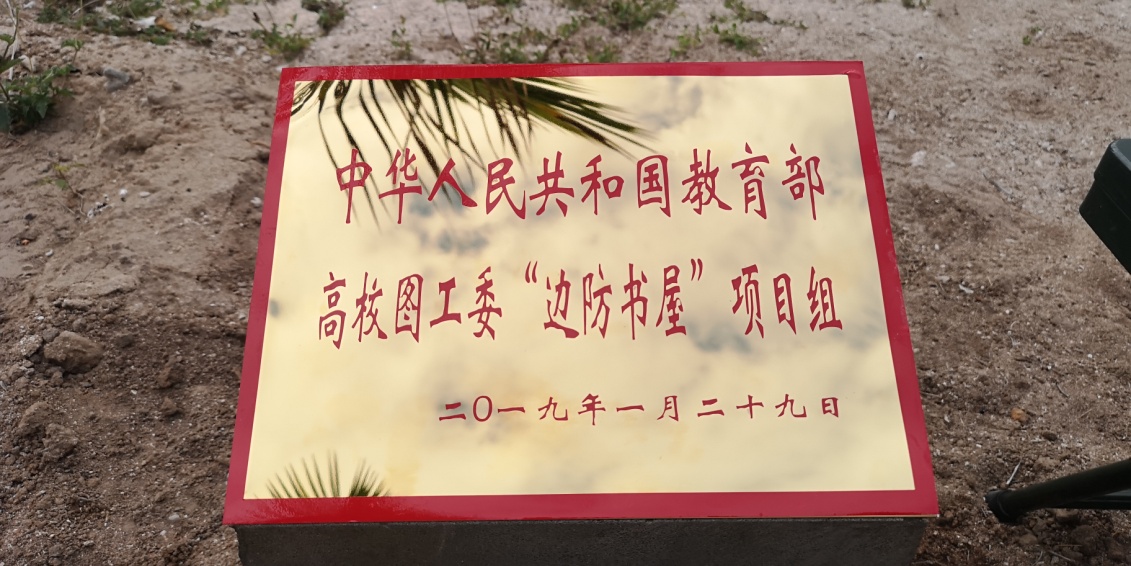 中华人民共和国教育部
高校图工委“边防书屋”项目组
二〇一九年一月二十九日